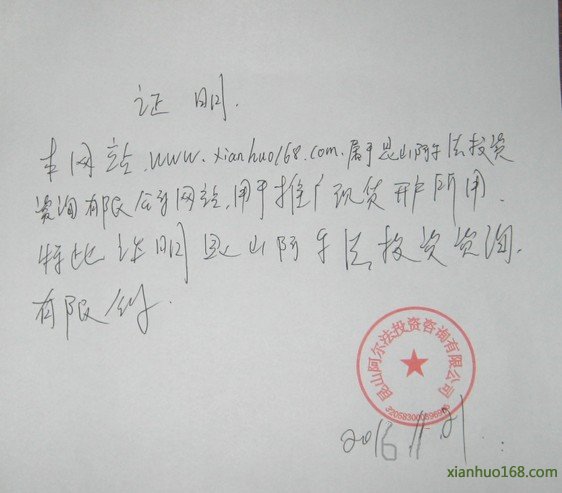 证 明.
本网站.www.xianhuo168.com.属于昆山阿尔法投资
资询有限公司网站,用于推广现货开户所用.
特此证明 昆山阿尔法投资资询.
有限公司.
昆山阿尔法投资咨询有限公司
2016.11.21.
xianhuo168.com